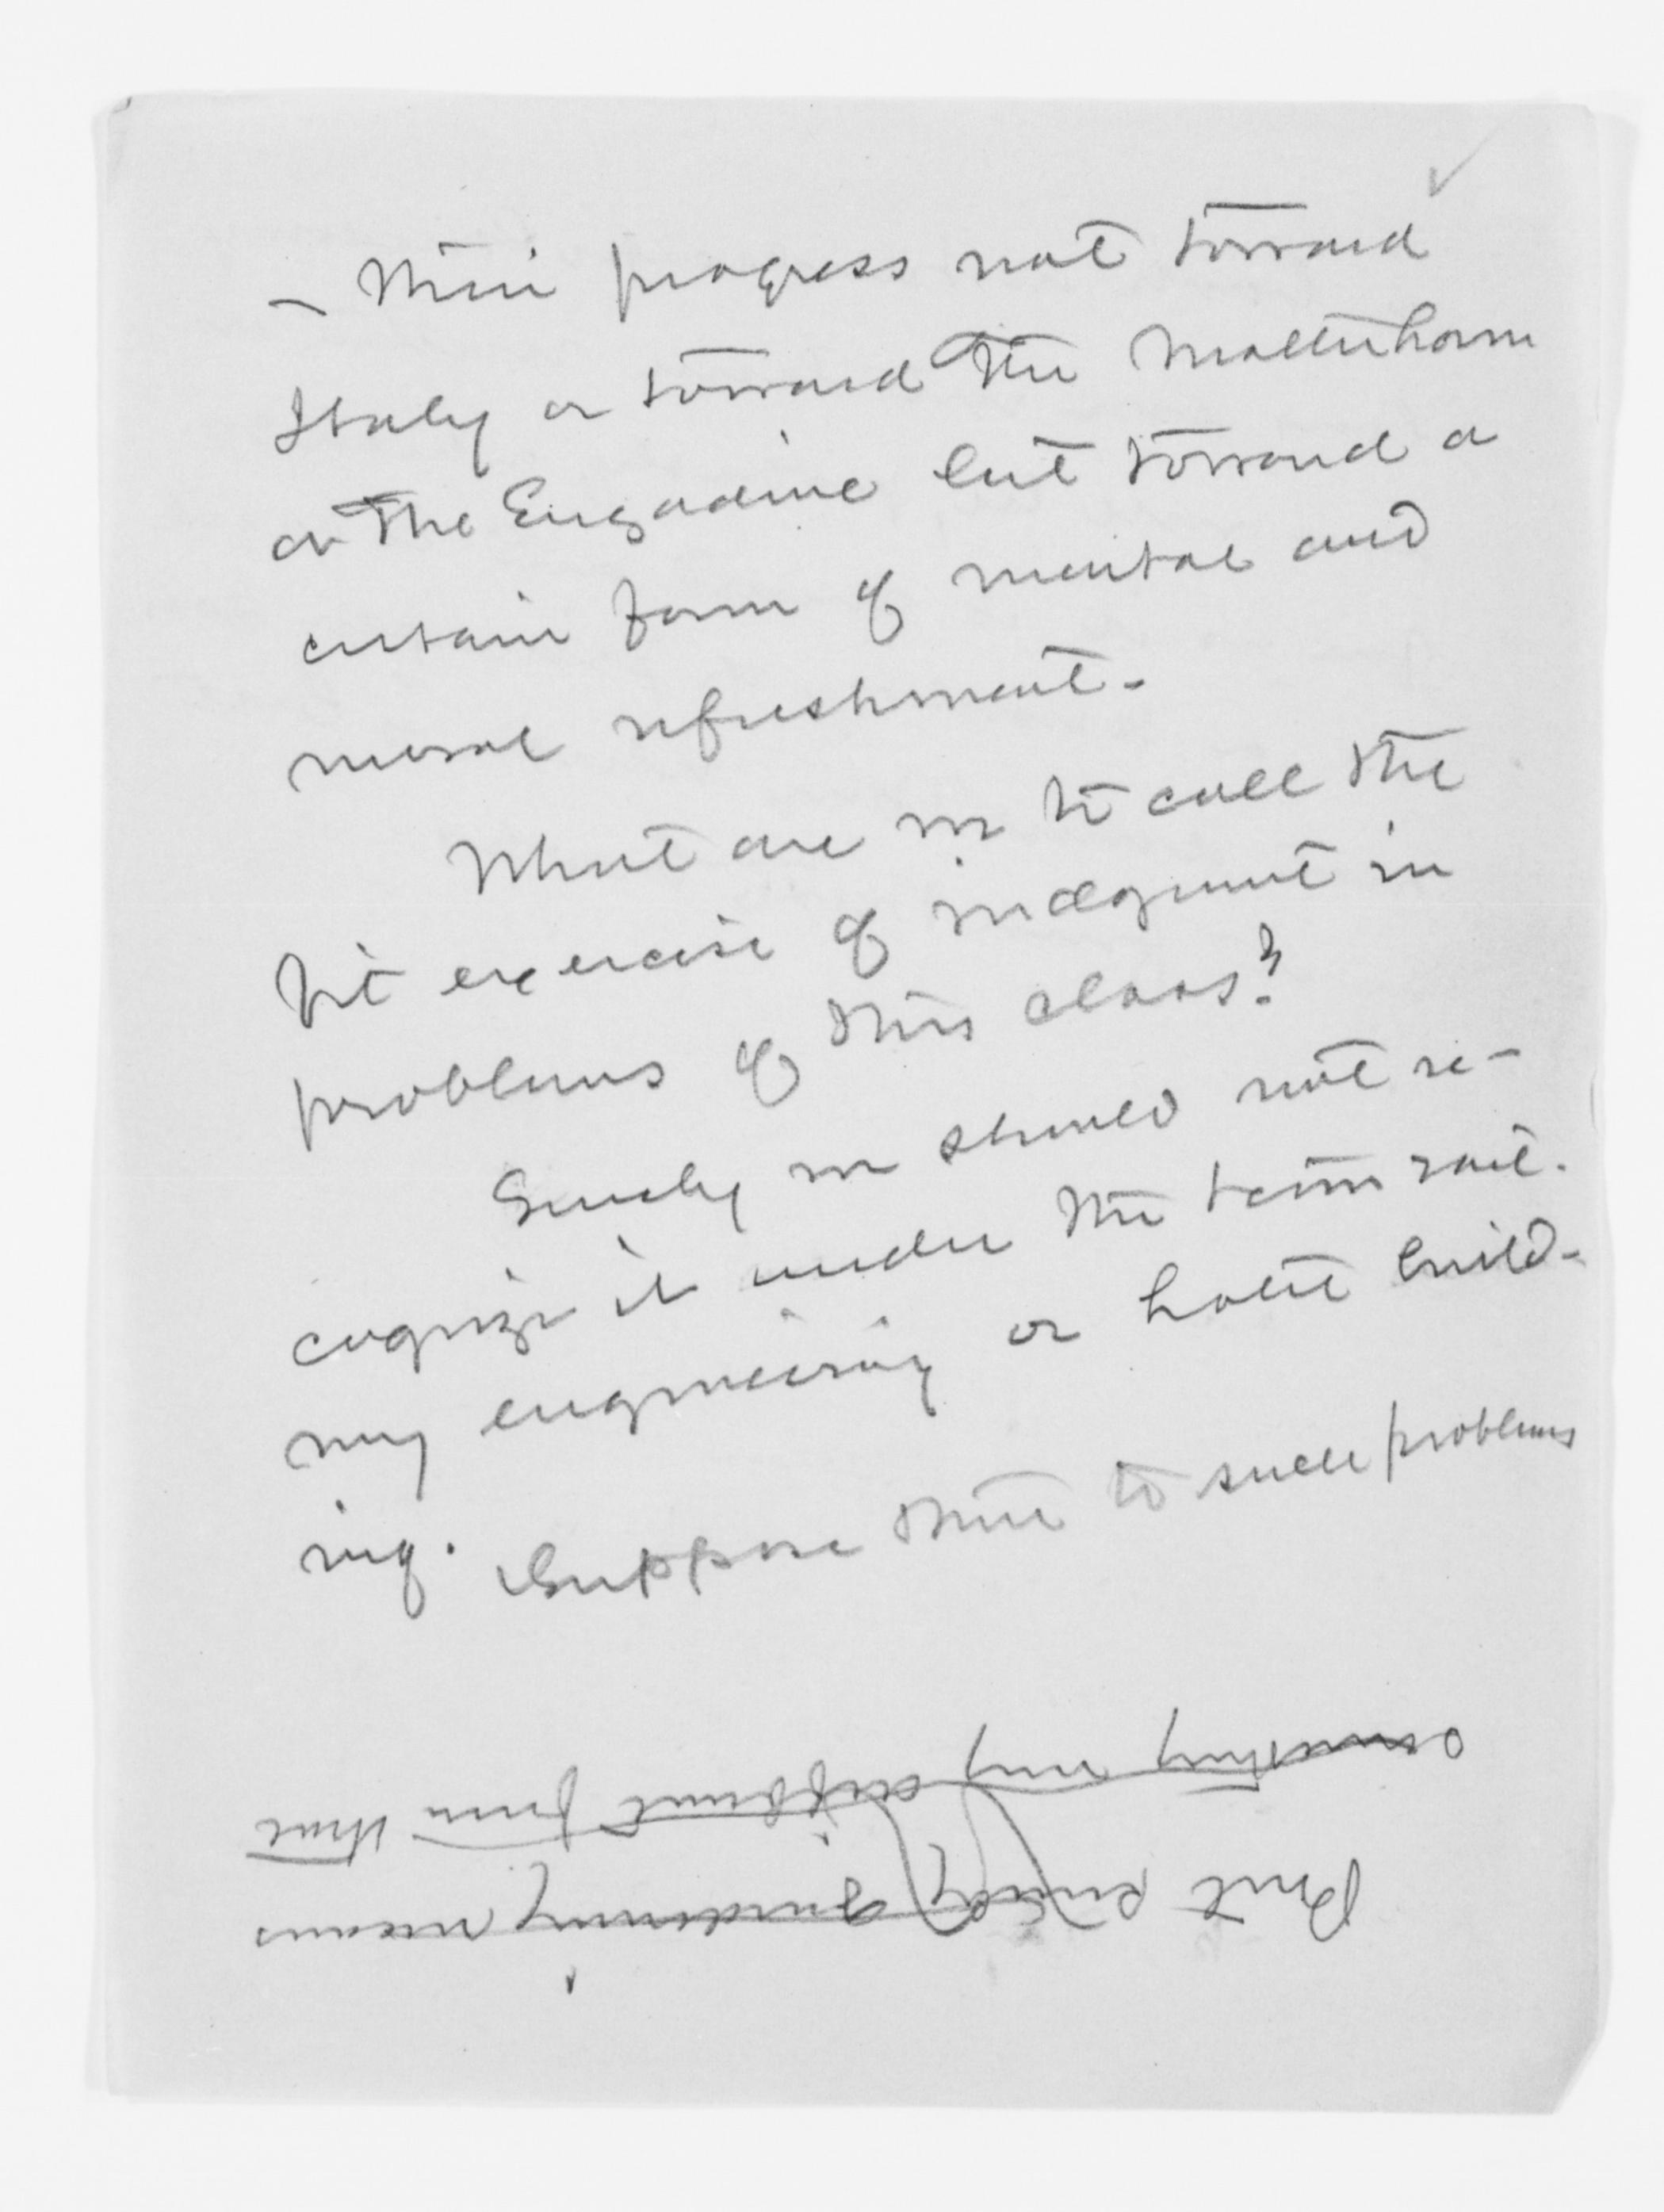 – their progress not toward
Italy or toward the Matterhorn
or the Engadine but toward a
certain form of mental and
moral refreshment.
What are we to call the
fit exercise of judgment in
problems of this class?
Surely we should not re-
cognize it under the term rail-
way engineering or hotel build-
ing. Suppose then to such problems
But surely gardening means
something very different from that